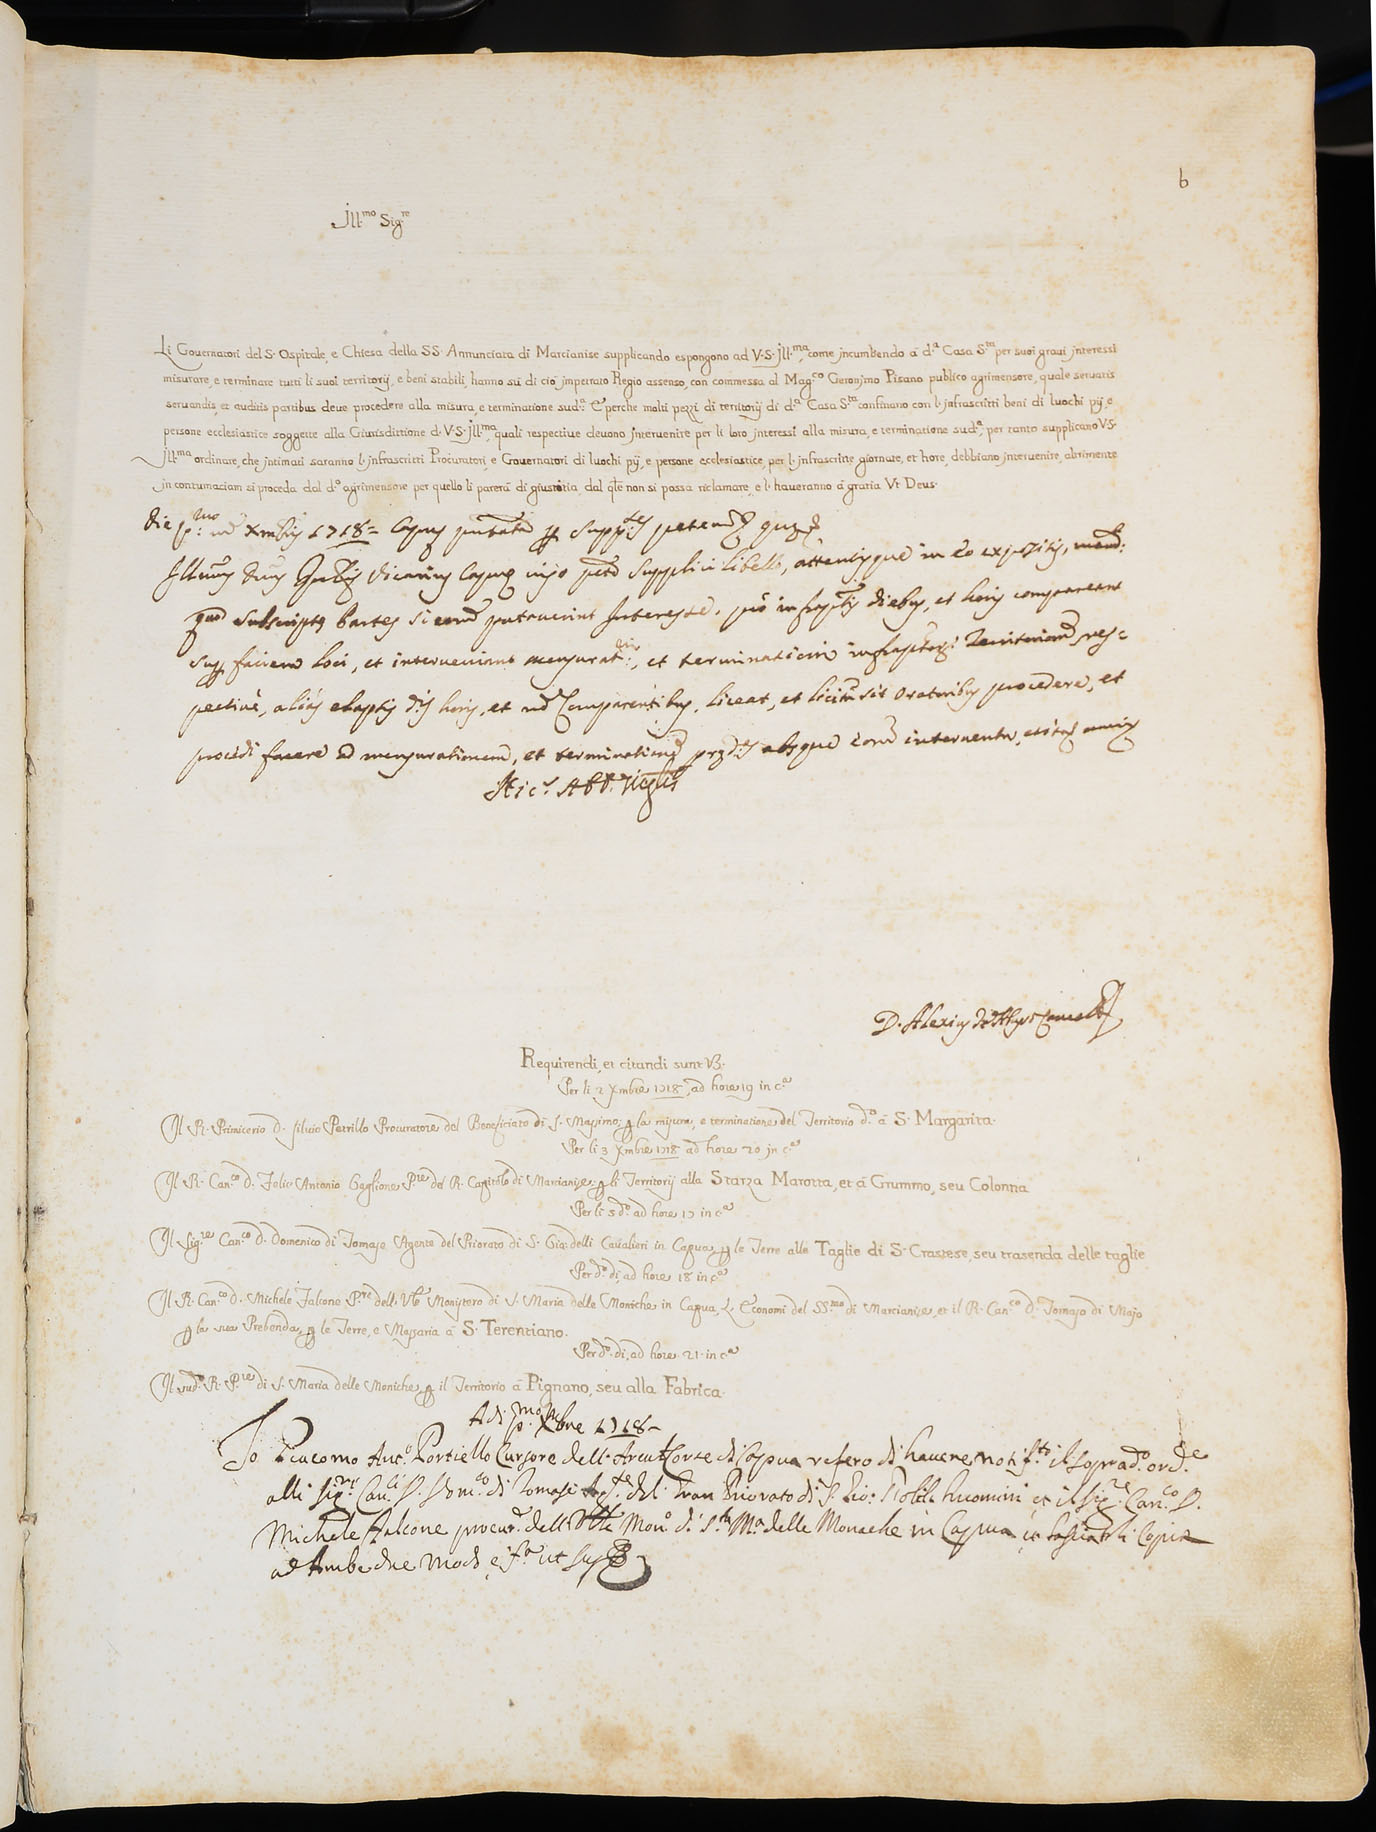 6
Ill.mo Sig.re
Li Gouernatori del S. Ospitale, e Chiesa della SS. Annunciata di Marcianise supplicando espongono ad V.S. Ill.ma, come incumbendo à d.a Casa S.ta per suoi graui interessi
misurare, e terminare tutti li suoi territorij, e beni stabili, hanno sù di ciò impetrato Regio assenso, con commessa al Mag.co Geronimo Pisano publico agrimensore, quale seruatis
seruandis, et auditis partibus deue procedere alla misura, e terminatione sud.a E perche molti pezzi di territorij di d.a Casa S.ta confinano con l'infrascritti beni di luochi pij, e
persone ecclesiastice soggette alla Giurisdittione di V.S. Ill.ma, quali respectiue deuono interuenire per li loro interessi alla misura, e terminatione sud.a, per tanto supplicano V.S.
Ill.ma ordinare, che intimati saranno l'infrascritti Procuratori, e Gouernatori di luochi pij, e persone ecclesiastice, per l'infrascritte giornate, et hore, debbiano interuenire, altrimente
in contumaciam si proceda dal d.o agrimensore per quello li parerà di giustitia, dal q.le non si possa reclamare, e l'haueranno à gratia Vt Deus.
die p.mo m. Xmbris 1718 =
supplici libello, attentisque in eo expositis, mand:
subscripte partes si earum putauerint Interesse, pro infraptis diebus, et horis compareant
faciem loci, et interueniant mensurat.ni, et terminationi infraptorum Territoriorum, res=
pectiuè, aliàs elapsis d.is horis, et non Comparentibus, liceat, et licitum sit Oratoribus procedere, et
procedi facere ad mensurationem, et terminationem absque eorum interuentu
D. Alexius
Requirendi, et citandi sunt V3.
Per li 2 Xmbre 1718, ad hore 19 in c.a
Il R. Primicerio D. Siluio Petrillo Procuratore del Beneficiato di S. Massimo, p la misura, e terminatione del Territorio d.o à S. Margarita.
Per li 3 Xmbre 1718 ad hore 20 in c.a
Il R. Can.co D. Felice Antonio Gaglione P.re del R. Capitolo di Marcianise, p li Territorij alla Starza Marotta, et à Grummo, seu Colonna
Per li 5 d.o ad hore 17 in c.a
Il Sig.re Can.co D. Domenico di Tomase Agente del Priorato di S. Gio: delli Caualieri in Capua, p le Terre alle Taglie di S. Crastese, seu trasenda delle taglie
Per d.o di, ad hore 18 in c.a
Il R. Can.co D. Michele Falcone P.re dell'Vble Monistero di S. Maria delle Moniche in Capua, L'Economi del SS.mo di Marcianise, et il R. Can.co D. Tomaso di Majo
p la sua Prebenda, p le Terre, e Massaria à S. Terentiano.
Per d.o di, ad hore 21 in c.a
Il sud.o R. P.re di S. Maria delle Moniche, p il Territorio à Pignano, seu alla Fabrica.
Adi p.mo Xbre 1718 =
Io Giacomo Ant.o Portiello Cursore dell' Corte di Capua refero di hauere notif.to il soprad.o ord.e
alli Sig.ri Can.ci D. Dom.co di Tomasi del Gran Priorato di S. Gio: et il Sig.re Can.co D.
Michele Falcone procur.e dell' Mon.o di S.ta M.a delle Monache in Capua, Copia
ad Ambedue